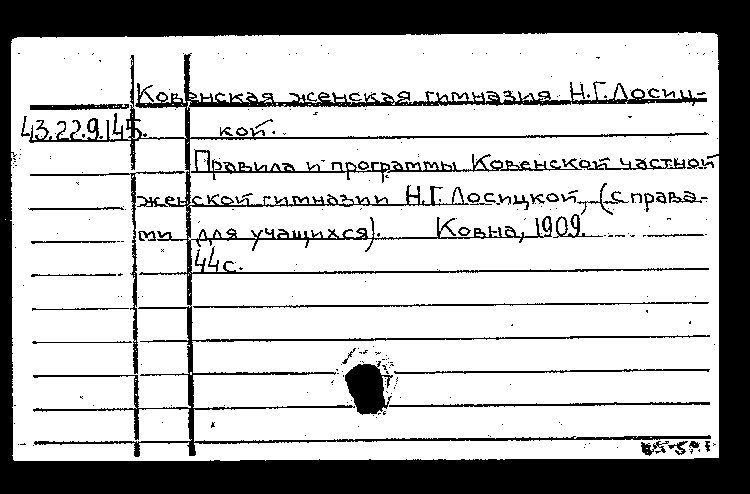 Ковенская женская гимназия Н.Г.Лосиц-
43.22.9.145. кой.
Правила и программы Ковенской частной
женской гимназии Н.Г. Лосицкой, (с права-
ми для учащихся). Ковна, 1909.
44 с.